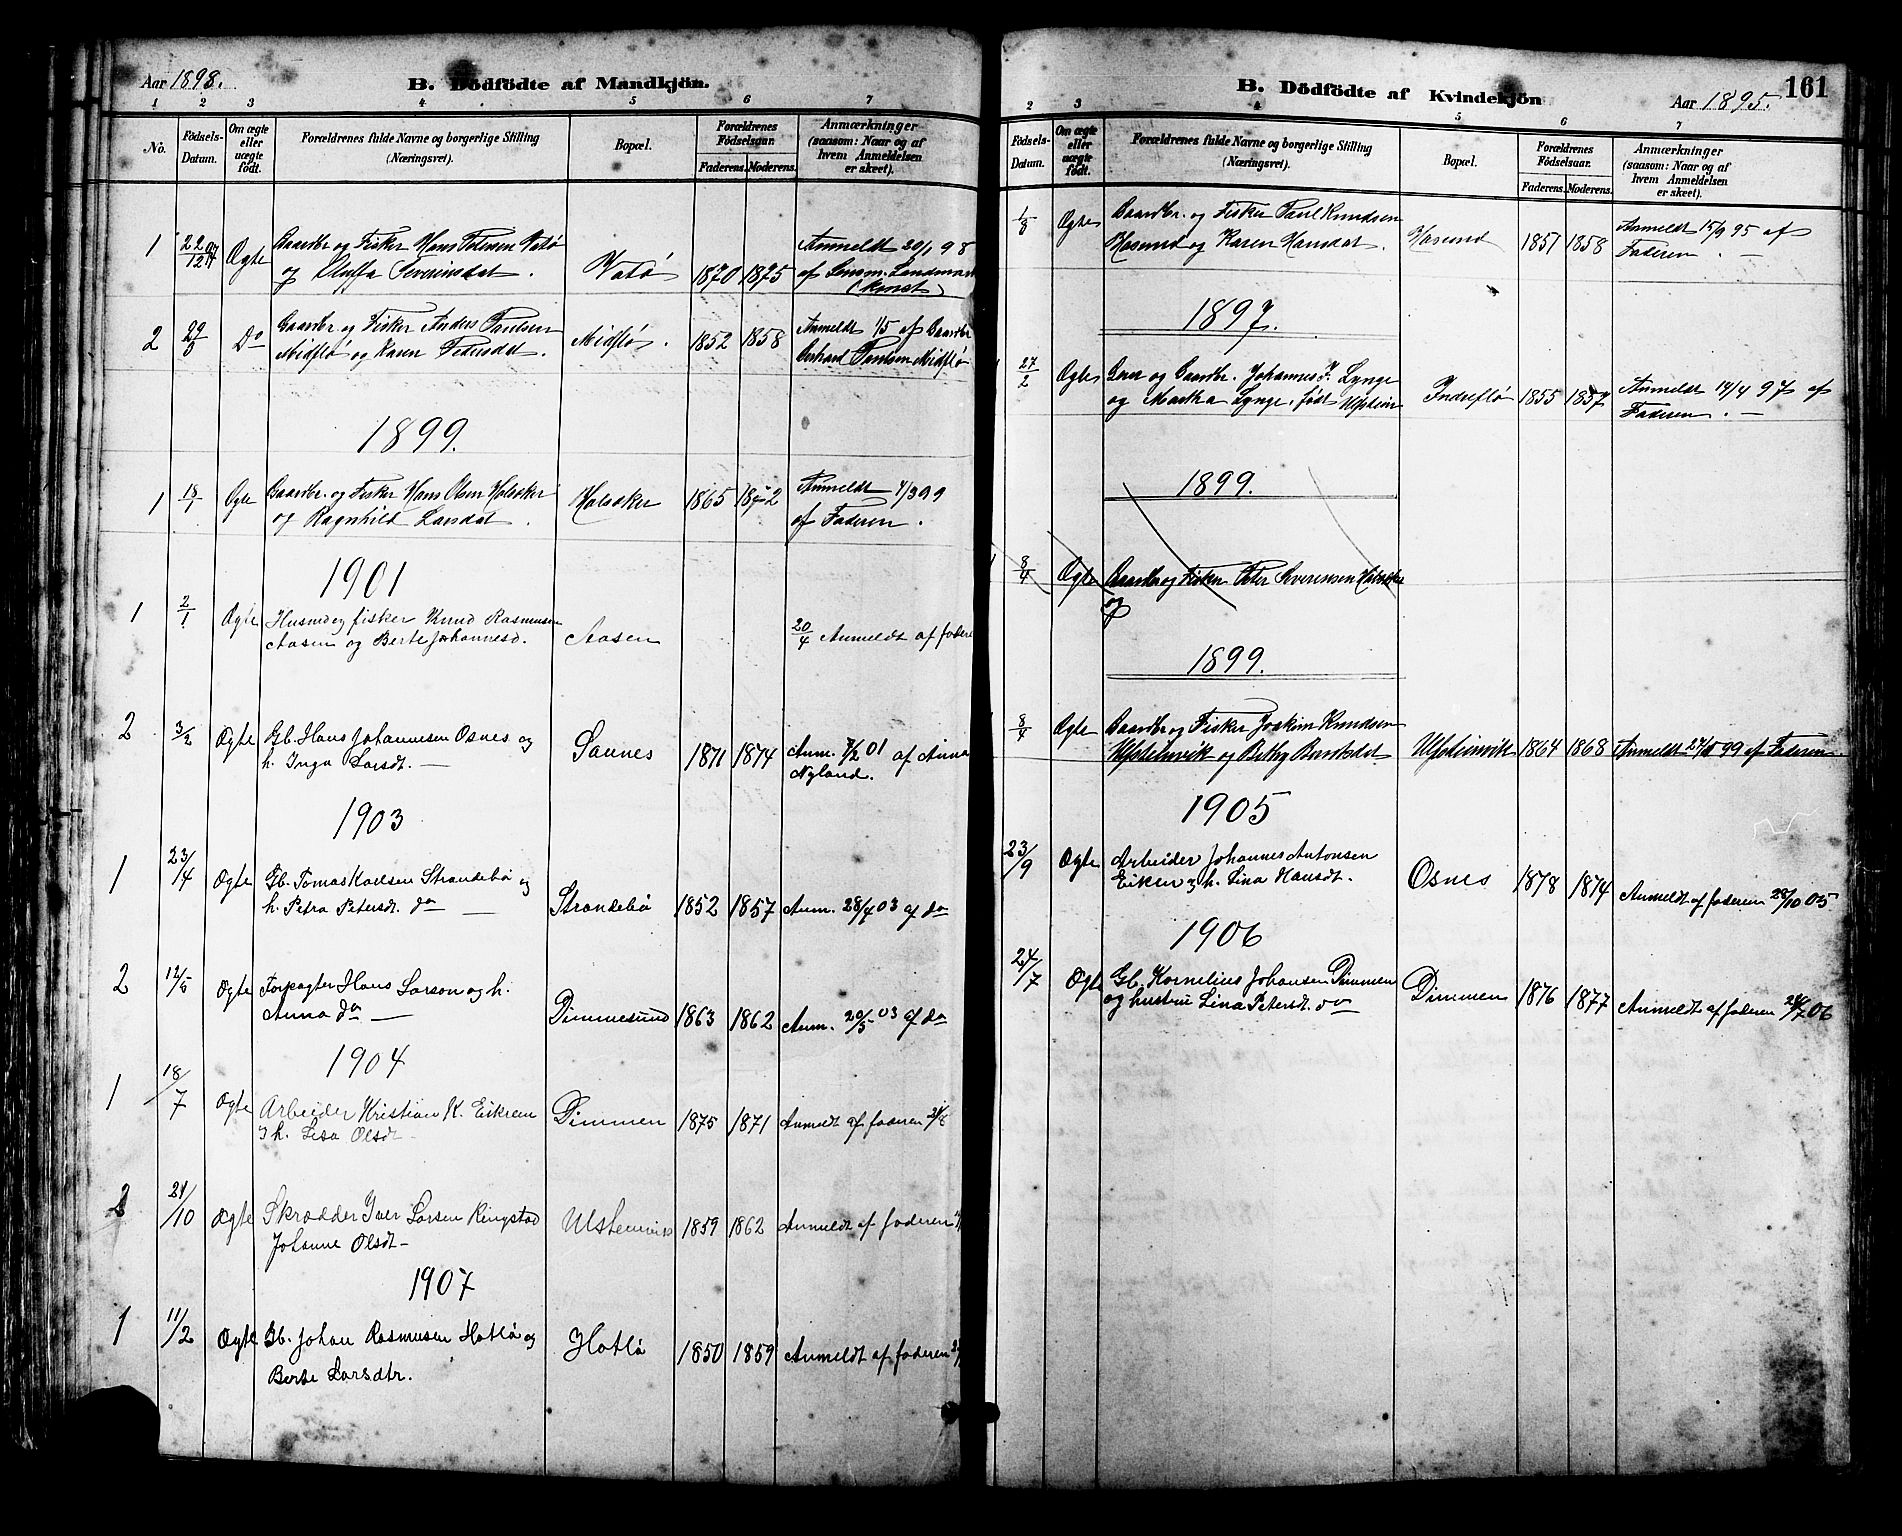 Aar 1898.
B. Dödfödte af Mandkjön.
1 2 3 4 5 6 7
No.
Födsels-Datum.
Om ægte eller uægte födt.
Forældrenes fulde Navne og borgerlige Stilling
(Næringsvei).
Bopæl.
Forældrenes Födselsaar.
Faderens. Moderens.
Anmærkninger
(saasom: Naar og af
hvem Anmeldelsen
er skeet).
1 22/12 97 Ægte Gaardbr. og Fisker Hans Petersen Vatø
og Oluffa Severinsdat. Vatø 1870 1875 Anmeldt 20/1 98
af Lensm. Landmark
2 29/3 Do Gaardbr. og Fisker Anders Paulsen
Midflø og Karen Pedersdat. Midflø. 1852 1858 Anmeldt 1/5 af Gaardbr.
Gerhard Paulsen Midflø
1899.
1 18/1 Ægte Gaardbr. og Fisker Hans Olsen Haldaker
og Ragnhild Larsdat. 1865 Anmeldt 4/3 99
af Faderen.
1901
1 2/1 Ægte Husmd og fisker Knud Rasmussen
Aasen og Berte Johannesd. Aasen 20/4 Anmeldt af fader
2 3/2 Ægte Gb. Hans Johannesen Osnes og
h. Inga Larsdt. — Saunes 1871 1874 Anm. 7/2 01 af Anna
Nyland.
1903
1 23/4 Ægte Gb. Tomas Karlsen Strandebø og
h. Petra Petersdt. do — Strandebø 1852 1857 Anm. 28/4 03 af do
2 12/5 Ægte Forpagter Hans Larson og h.
Anna do — Dimmesund 1863 1862 Anm. 20/5 03 af do
1904
1 18/7 Ægte Arbeider Kristian K. Eikrem
og h. Lisa Olsdt - Dimmen 1875 1871 Anmeldt af faderen
2 21/10 Ægte Skrædder Iver Larsen Ringstad
Johanne Olsdt - Ulstenvik 1859 1862 Anmeldt af faderen
1907
1 11/2 Ægte Gb. Johan Rasmusen Hatlø og
Berte Larsdtr. Hatlø 1850 1859 Anmeldt af faderen
161
B. Dödfödte af Kvindekjön
Aar 1895.
2 3 4 5 6 7
Födsels-Datum.
Om ægte eller uægte födt.
Forældrenes fulde Navne og borgerlige Stilling
(Næringsvei).
Bopæl.
Forældrenes Födselsaar.
Faderens. Moderens.
Anmærkninger
(saasom: Naar og af
hvem Anmeldelsen
er skeet).
Ægte Gaardbr. og Fisker Paul Knudsen
Hasund og Karen Hansdat. Hasund 1851 1858 Anmeldt 15/9 95 af
Faderen. —
1897.
27/2 Ægte og Gaardbr. Johannes J. Lynge
og Martha Lynge, født Ulstein Indreflø 1855 1857 Anmeldt 14/4 97 af
Faderen. —
1899.
8/4 Ægte Gaardbr og Fisker Peter
og
1899.
8/4 Ægte Gaardbr og Fisker Joakim Knudsen
Ulsteinvik og Bethy Ulsteinvik 1864 1868 Anmeldt 99 af Faderen
1905
23/9 Ægte Arbeider Johannes Antonsen
Eikrem og h. Lina Hansdt. Osnes 1878 1874 Anmeldt af faderen 28/10 05
1906
24/7 Ægte Gb. Kornelius Johansen Dimmen
og hustru Lina Petersdt. do Dimmen 1876 1877 Anmeldt af faderen 06